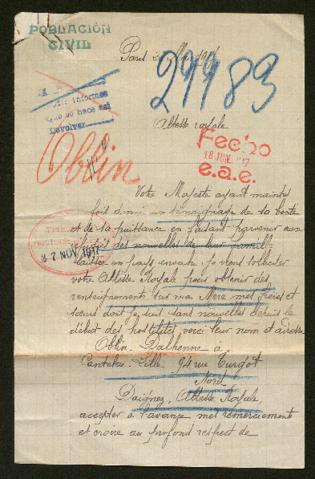 POBLACIÓN
CIVIL
Paris
29983
que se hace mal
Devolver
Altesse royale
Fecho
18 JUN. 17
e.a.e.
Oblin
Votre Majesté ayant maintes
fois donné un témoignage de sa bonté
et de sa puissance en faisant parvenir aux
des nouvelles de leur famille
laissée en pays envahi je viens solliciter
votre Altesse Royale pour obtenir des
renseignements sur ma Mère mes frères et
sœurs dont je suis sans nouvelles depuis le
début des hostilités voici leur nom et adresse
7 NOV. 1917
Oblin Dalhenne à
Canteleu Lille 94 rue Turgot
Nord
Daignez Altesse Royale
accepter à l'avance mes remerciements
et croire au profond respect de